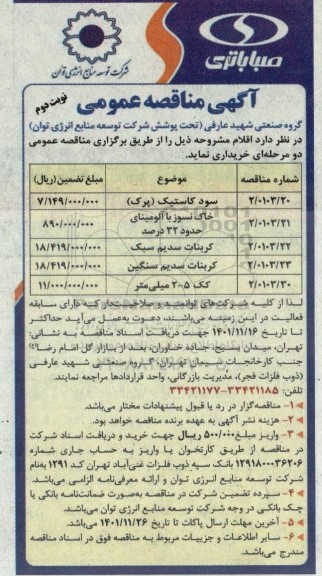 صباباتری
شرکت توسعه منابع انرژی توان
نوبت دوم
آگهی مناقصه عمومی
گروه صنعتی شهید عارفی (تحت پوشش شرکت توسعه منابع انرژی توان)
در نظر دارد اقلام مشروحه ذیل را از طریق برگزاری مناقصه عمومی
دو مرحله‌ای خریداری نماید.
شماره مناقصه موضوع مبلغ تضمین(ریال)
۲/۰۱۰۳/۲۰ سود کاستیک (پرک) ۷/۱۴۹/۰۰۰/۰۰۰
۲/۰۱۰۳/۲۱ خاک نسوز با آلومینای حدود ۳۲ درصد ۸۹۰/۰۰۰/۰۰۰
۲/۰۱۰۳/۲۲ کربنات سدیم سبک ۱۸/۴۱۹/۰۰۰/۰۰۰
۲/۰۱۰۳/۲۳ کربنات سدیم سنگین ۱۸/۴۱۹/۰۰۰/۰۰۰
۲/۰۱۰۳/۳۰ کک ۵-۲ میلی‌متر ۱۱/۰۰۰/۰۰۰/۰۰۰
لذا از کلیه شرکت‌های توانمند و صلاحیت‌دار که دارای سابقه
فعالیت در این زمینه می‌باشند، دعوت به‌عمل می‌آید حداکثر
تا تاریخ ۱۴۰۱/۱۱/۱۶ جهت دریافت اسناد مناقصه به نشانی:
تهران، میدان بسیج، جاده خاوران، بعد از بازار گل امام رضا(ع)
جنب کارخانجات سیمان تهران گروه صنعتی شهید عارفی
(ذوب فلزات فجر)، مدیریت بازرگانی، واحد قراردادها مراجعه نمایند.
تلفن: ۳۳۴۲۱۱۸۵-۳۳۴۲۱۱۷۷
۱- مناقصه‌گزار در رد یا قبول پیشنهادات مختار می‌باشد.
۲- هزینه نشر آگهی به عهده برنده مناقصه خواهد بود.
۳- واریز مبلغ ۵۰۰/۰۰۰ ریال جهت خرید و دریافت اسناد شرکت
در مناقصه از طریق کارتخوان یا واریز به حساب جاری شماره
۱۲۹۱۸۰۰۰۳۶۲۰۶ بانک سپه ذوب فلزات غنی‌آباد تهران کد ۱۲۹۱ به‌نام
شرکت توسعه منابع انرژی توان و ارائه معرفی‌نامه الزامی می‌باشد.
۴- سپرده تضمین شرکت در مناقصه به‌صورت ضمانت‌نامه بانکی یا
چک بانکی در وجه شرکت توسعه منابع انرژی توان می‌باشد.
۵- آخرین مهلت ارسال پاکات تا تاریخ ۱۴۰۱/۱۱/۲۶ می‌باشد.
۶- سایر اطلاعات و جزییات مربوط به مناقصه فوق در اسناد مناقصه
مندرج می‌باشد.